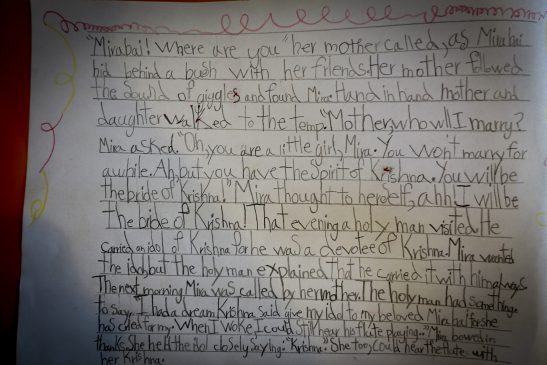 "Mirabai! Where are you" her mother called, as Mirabai
hid behind a bush with her friends. Her mother followed
the sound of giggles and found Mira. Hand in hand mother and
daughter walked to the temp. "Mother, who will I marry?
Mira asked. "Oh, you are a little girl, Mira. You won't marry for
awhile. Ah, but you have the Spirit of Krishna. You will be
the bride of Krishna!" Mira thought to herself, ahh I will be
the bride of Krishna! That evening a holy man visited. He
carried an idol of Krishna for he was a devotee of Krishna. Mira wanted
the idol, but the holy man explained that he carried it with him always
The next morning Mira was called by her mother. The holy man had something
to say. "I had a dream. Krishna said give my idol to my beloved Mirabai for she
has cried for my. When I woke I could still hear his flute playing." Mira bowed in
thanks. She held the idol closely saying: "Krishna." She too, could hear the flute with
her Krishna.